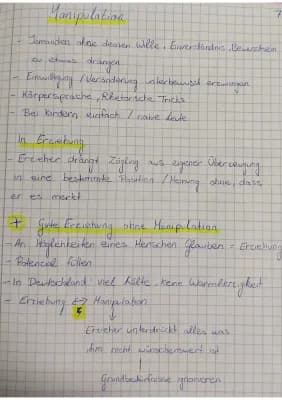 Manipulation
- Jemanden ohne dessen Wille, Einverständnis, Bewusstsein
zu etwas drängen
- Einwilligung / Veränderung unterbewusst erzwingen
- Körpersprache, Rhetorische Tricks
- Bei Kindern einfach / naive Leute
In Erziehung
- Erzieher drängt Zögling aus eigener Überzeugung
in eine bestimmte Position / Meinung ohne, dass
er es merkt
+ Gute Erziehung ohne Manipulation
- An Möglichkeiten eines Menschen Glauben = Erziehung
- Potenzial füllen
- In Deutschland viel Kälte, keine Warmherzigkeit
- Erziehung ↔ Manipulation
Erzieher unterdrückt alles was
ihm nicht wünschenswert ist
Grundbedürfnisse ignorieren